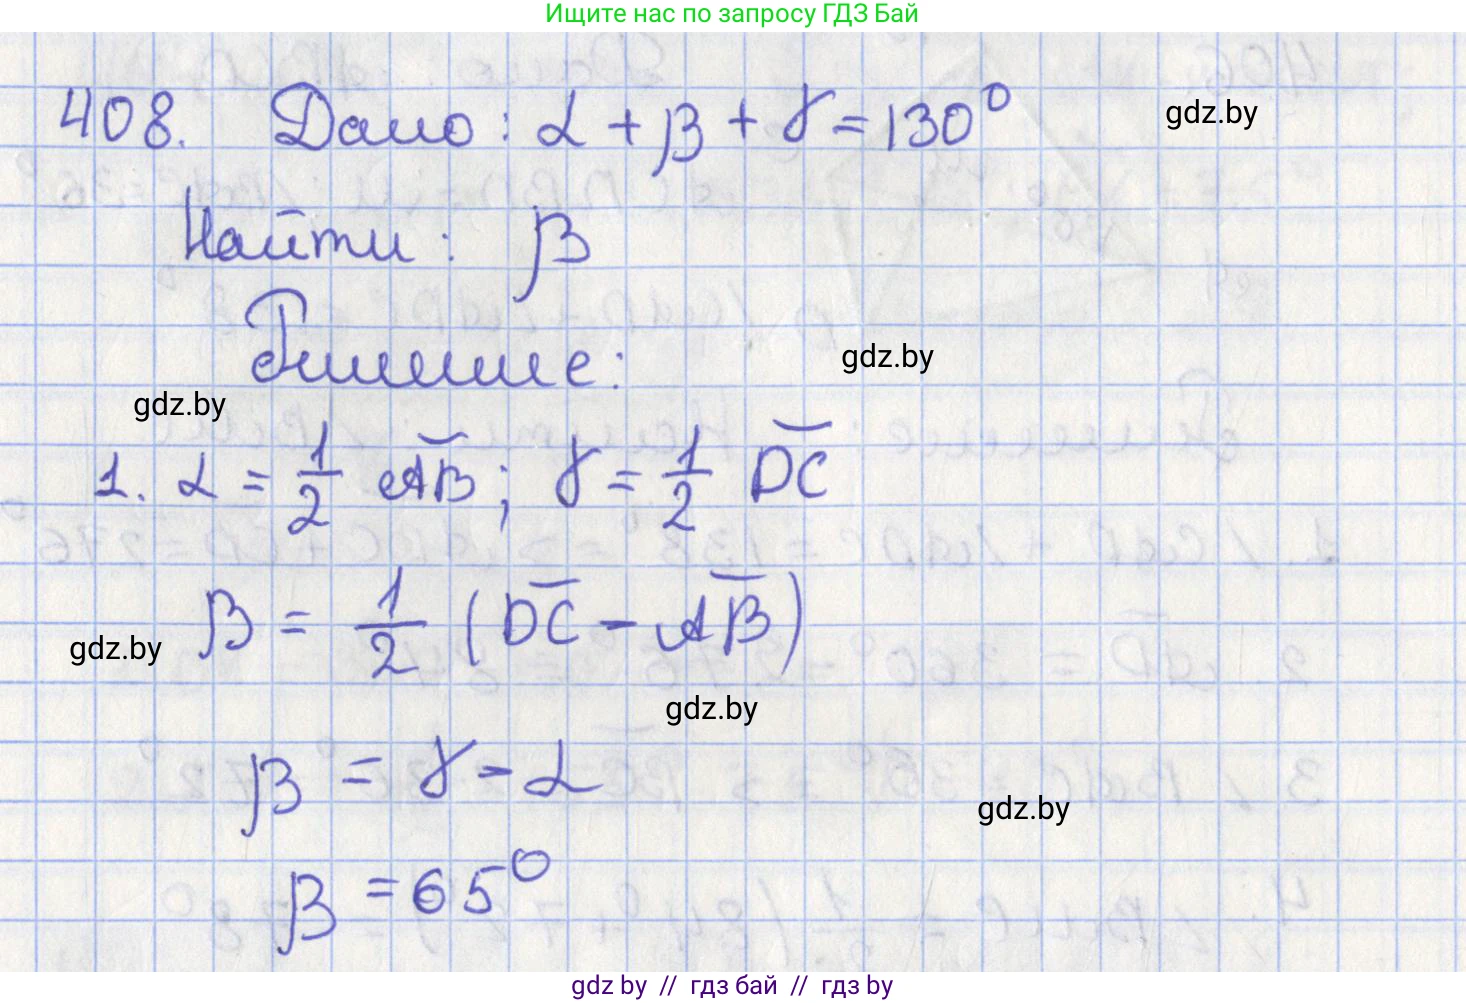 Ищите нас по запросу ГДЗ Бай
408. Дано: α + β + γ = 130°
gdz.by
Найти: β
Решение:
gdz.by
gdz.by
1. α = 1/2 AB; γ = 1/2 DC
β = 1/2 (DC - AB)
gdz.by
gdz.by
β = γ - α
gdz.by
β = 65°
gdz by // гдз бай // гдз by